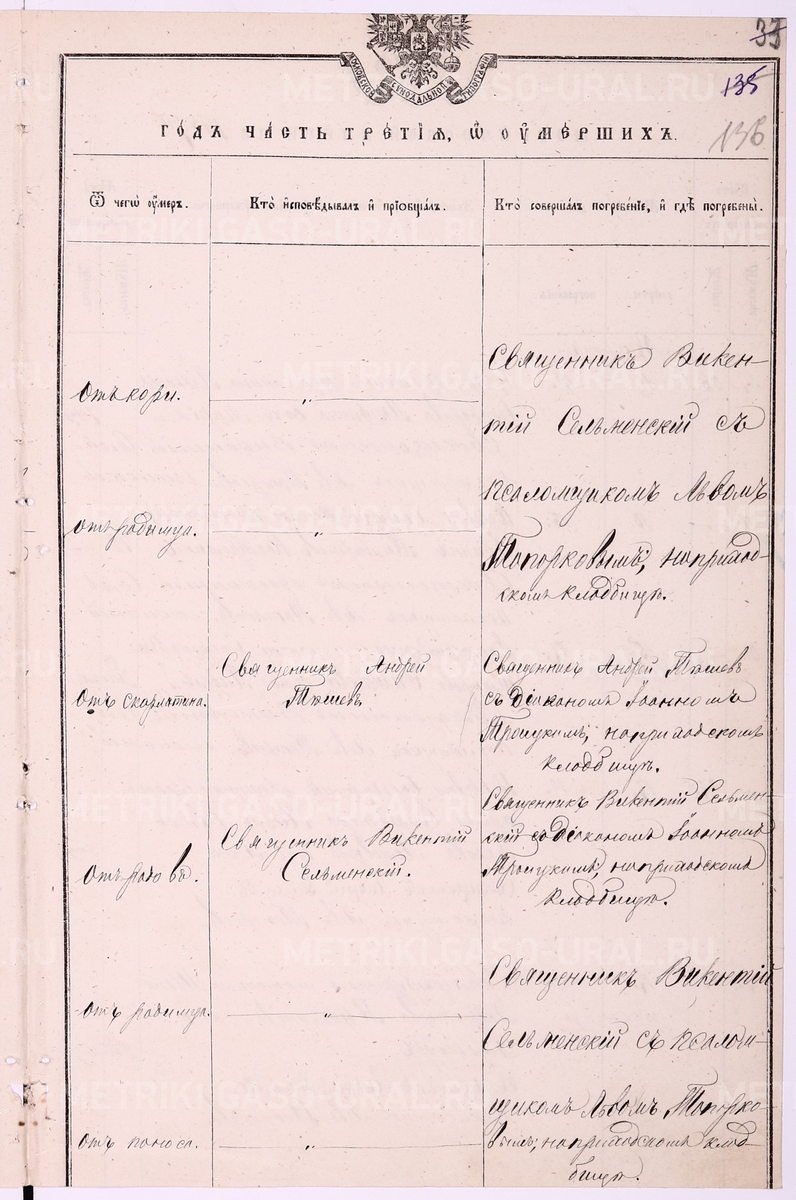 МОСКОВСКОЙ СѴНОДАЛЬНОЙ ТИПОГРАФІИ
135
136
го́дъ ча́сть тре́тїѧ, ѡ҆ оу҆ме́ршихъ.
Ѿ чегѡ̀ оу҆́меръ.
Кто̀ и҆сповѣ́дывалъ и҆ прїѡбща́лъ.
Кто̀ соверша́лъ погребе́нїе, и҆ гдѣ̀ погребены̀.
Отъ кори.
"
Священникъ Викен-
тій Сельменскій съ
псаломщикомъ Львомъ
Топорковымъ, на приход-
скомъ кладбищѣ.
отъ родимца.
"
Отъ скарлатина.
Священникъ Андрей
Священникъ Андрей
съ діакономъ Іоанномъ
Троицкимъ, на приходскомъ
кладбищѣ.
Отъ родовъ.
Священникъ Викентій
Сельменскій.
Священникъ Викентій Сельмен-
скій съ діакономъ Іоанномъ
Троицкимъ, на приходскомъ
кладбищѣ.
отъ родимца.
"
Священникъ Викентій
Сельменскій съ псалом-
щикомъ Львомъ Топорко-
вымъ, на приходскомъ клад-
бищѣ.
отъ поноса.
"
METRIKI.GASO-URAL.RU